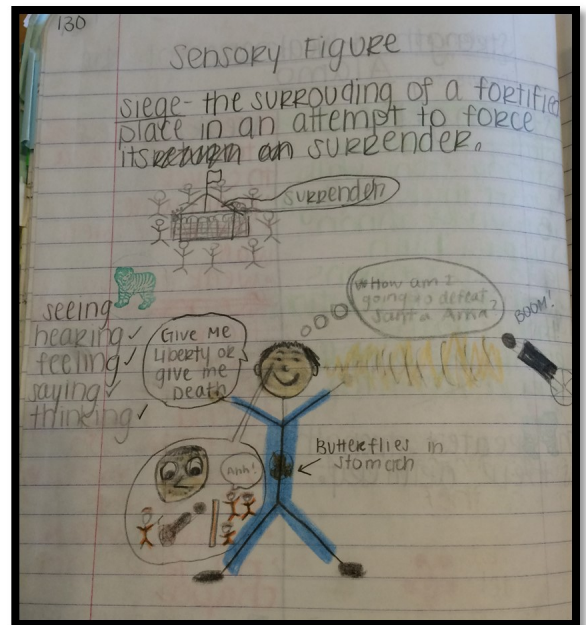 130
Sensory Figure
siege- the surrouding of a fortified
place in an attempt to force
its surrender.
surrender?
seeing
hearing ✓
feeling ✓
saying ✓
thinking ✓
Give me
liberty or
give me
Death
How am I
going to defeat
Santa Anna?
BOOM!
Ahh!
Butterflies in
stomach